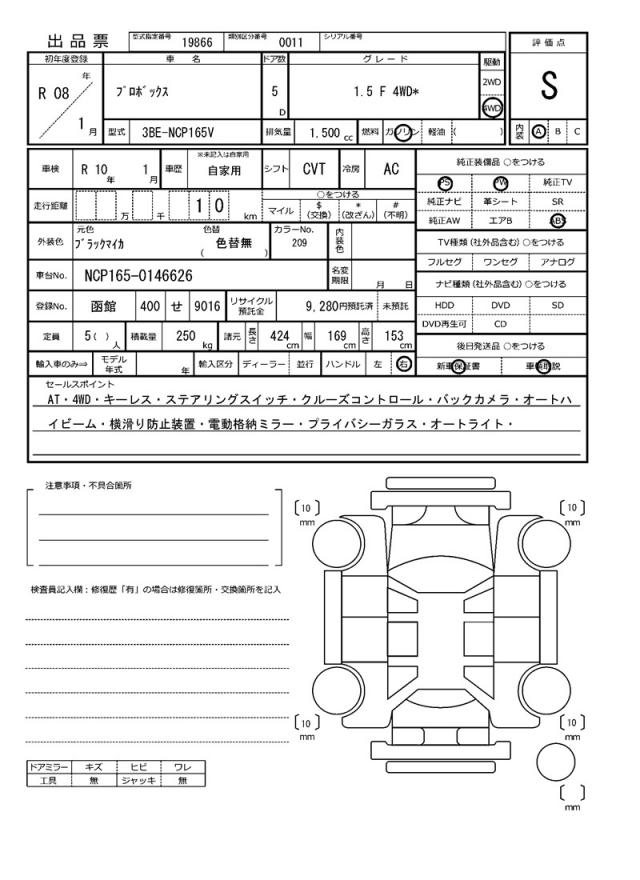 出品票 型式指定番号 19866 類別区分番号 0011 シリアル番号
評価点
S
初年度登録 車名 ドア数 グレード 駆動
R 08 年 1 月
プロボックス 5 D 1.5 F 4WD* 2WD 4WD
型式 3BE-NCP165V 排気量 1.500 cc 燃料 ガソリン 軽油 ( )
内装 A B C
車検 R 10 年 1 月 車歴 ※未記入は自家用 自家用 シフト CVT 冷房 AC
走行距離 万 千 1 0 km
○をつける
マイル $(交換) *(改ざん) #(不明)
外装色 元色 ブラックマイカ 色替 ( 色替無 ) カラーNo. 209 内装色
車台No. NCP165-0146626 名変期限 月 日
登録No. 函館 400 せ 9016 リサイクル預託金 9,280円預託済 未預託
定員 5( ) 人 積載量 250 kg 諸元 長さ 424 cm 幅 169 cm 高さ 153 cm
輸入車のみ⇒ モデル年式 年 輸入区分 ディーラー 並行 ハンドル 左 右
純正装備品 ○をつける
PS PW 純正TV
純正ナビ 革シート SR
純正AW エアB ABS
TV種類 (社外品含む) ○をつける
フルセグ ワンセグ アナログ
ナビ種類 (社外品含む) ○をつける
HDD DVD SD
DVD再生可 CD
後日発送品 ○をつける
新車保証書 車輌取説
セールスポイント
AT・4WD・キーレス・ステアリングスイッチ・クルーズコントロール・バックカメラ・オートハ
イビーム・横滑り防止装置・電動格納ミラー・プライバシーガラス・オートライト・
注意事項・不具合箇所
検査員記入欄：修復歴「有」の場合は修復箇所・交換箇所を記入
ドアミラー キズ ヒビ ワレ
工具 無 ジャッキ 無
[10] mm
[10] mm
[10] mm
[10] mm
[ ] mm